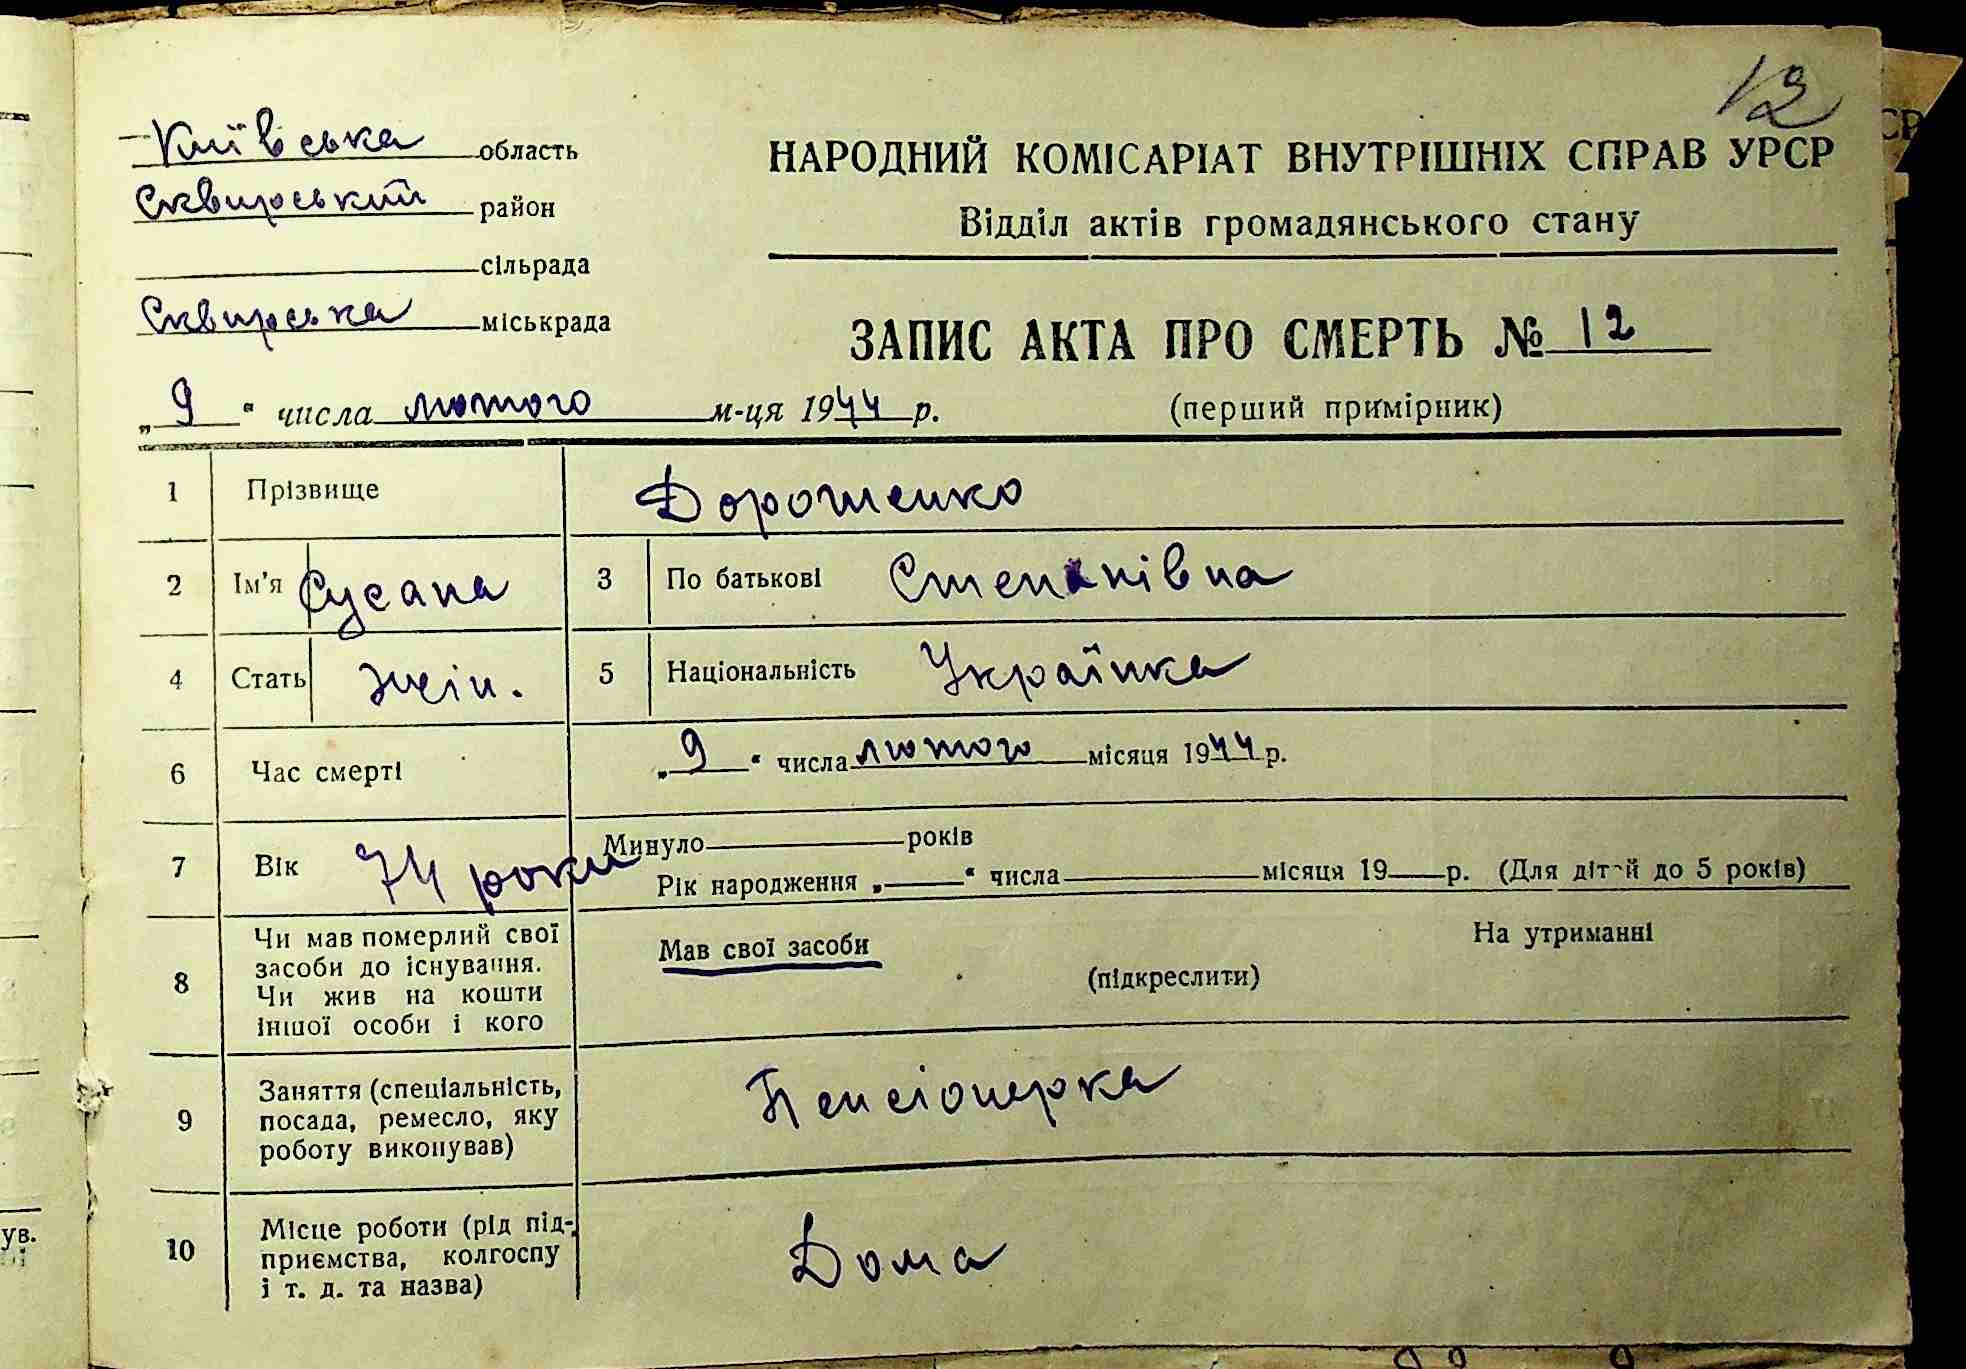 12
Київська область
Сквирський район
сільрада
Сквирська міськрада
НАРОДНИЙ КОМІСАРІАТ ВНУТРІШНІХ СПРАВ УРСР
Відділ актів громадянського стану
ЗАПИС АКТА ПРО СМЕРТЬ № 12
(перший примірник)
„ 9 “ числа лютого м-ця 1944 р.
1 Прізвище Дорошенко
2 Ім'я Сусана 3 По батькові Степанівна
4 Стать жін. 5 Національність Українка
6 Час смерті „ 9 “ числа лютого місяця 1944 р.
7 Вік 74 роки Минуло років
Рік народження „ “ числа місяця 19 р. (Для дітей до 5 років)
8 Чи мав померлий свої
засоби до існування.
Чи жив на кошти
іншої особи і кого
Мав свої засоби (підкреслити) На утриманні
9 Заняття (спеціальність,
посада, ремесло, яку
роботу виконував)
Пенсіонерка
10 Місце роботи (рід під-
приємства, колгоспу
і т. д. та назва)
Дома
ув.
СР